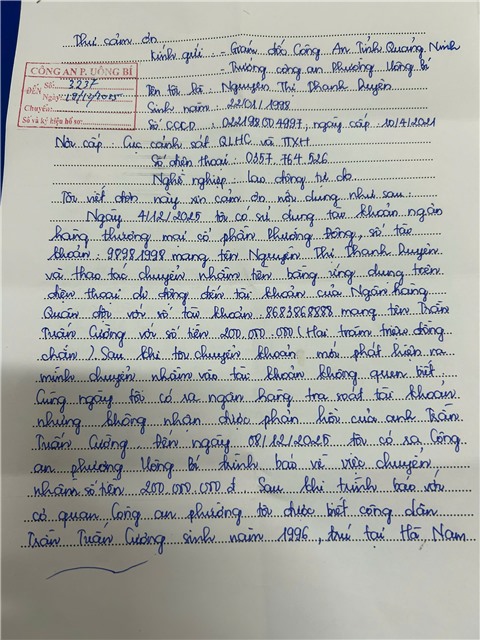 Thư cảm ơn
Kính gửi: - Giám đốc Công An Tỉnh Quảng Ninh
- Trưởng công an Phường Uông Bí
CÔNG AN P. UÔNG BÍ
ĐẾN Số: 3237
Ngày: 18/12/2025
Chuyển:
Số và ký hiệu hồ sơ:
Tên tôi là: Nguyễn Thị Thanh Huyền
Sinh năm: 22/01/1998
Số CCCD: 022198004997, ngày cấp: 10/4/2021
Nơi cấp: Cục cảnh sát QLHC và TTXH
Số điện thoại: 0357.764.526
Nghề nghiệp: lao động tự do
Tôi viết đơn này xin cảm ơn nội dung như sau:
Ngày 4/12/2025 tôi có sử dụng tài khoản ngân
hàng thương mại cổ phần Phương Đông, số tài
khoản: 98981998 mang tên Nguyễn Thị Thanh Huyền
và thao tác chuyển nhầm tiền bằng ứng dụng trên
điện thoại di động đến tài khoản của Ngân hàng
Quân đội với số tài khoản: 8683868888 mang tên Trần
Tuấn Cường với số tiền 200.000.000 (Hai trăm triệu đồng
chẵn). Sau khi tôi chuyển khoản mới phát hiện ra
mình chuyển nhầm vào tài khoản không quen biết.
Cùng ngày tôi có ra ngân hàng tra soát tài khoản
nhưng không nhận được phản hồi của anh Trần
Tuấn Cường. Đến ngày 08/12/2025 tôi có ra Công
an phường Uông Bí trình báo về việc chuyển
nhầm số tiền 200.000.000đ. Sau khi trình báo với
cơ quan Công an phường tôi được biết công dân
Trần Tuấn Cường sinh năm 1996, trú tại Hà Nam